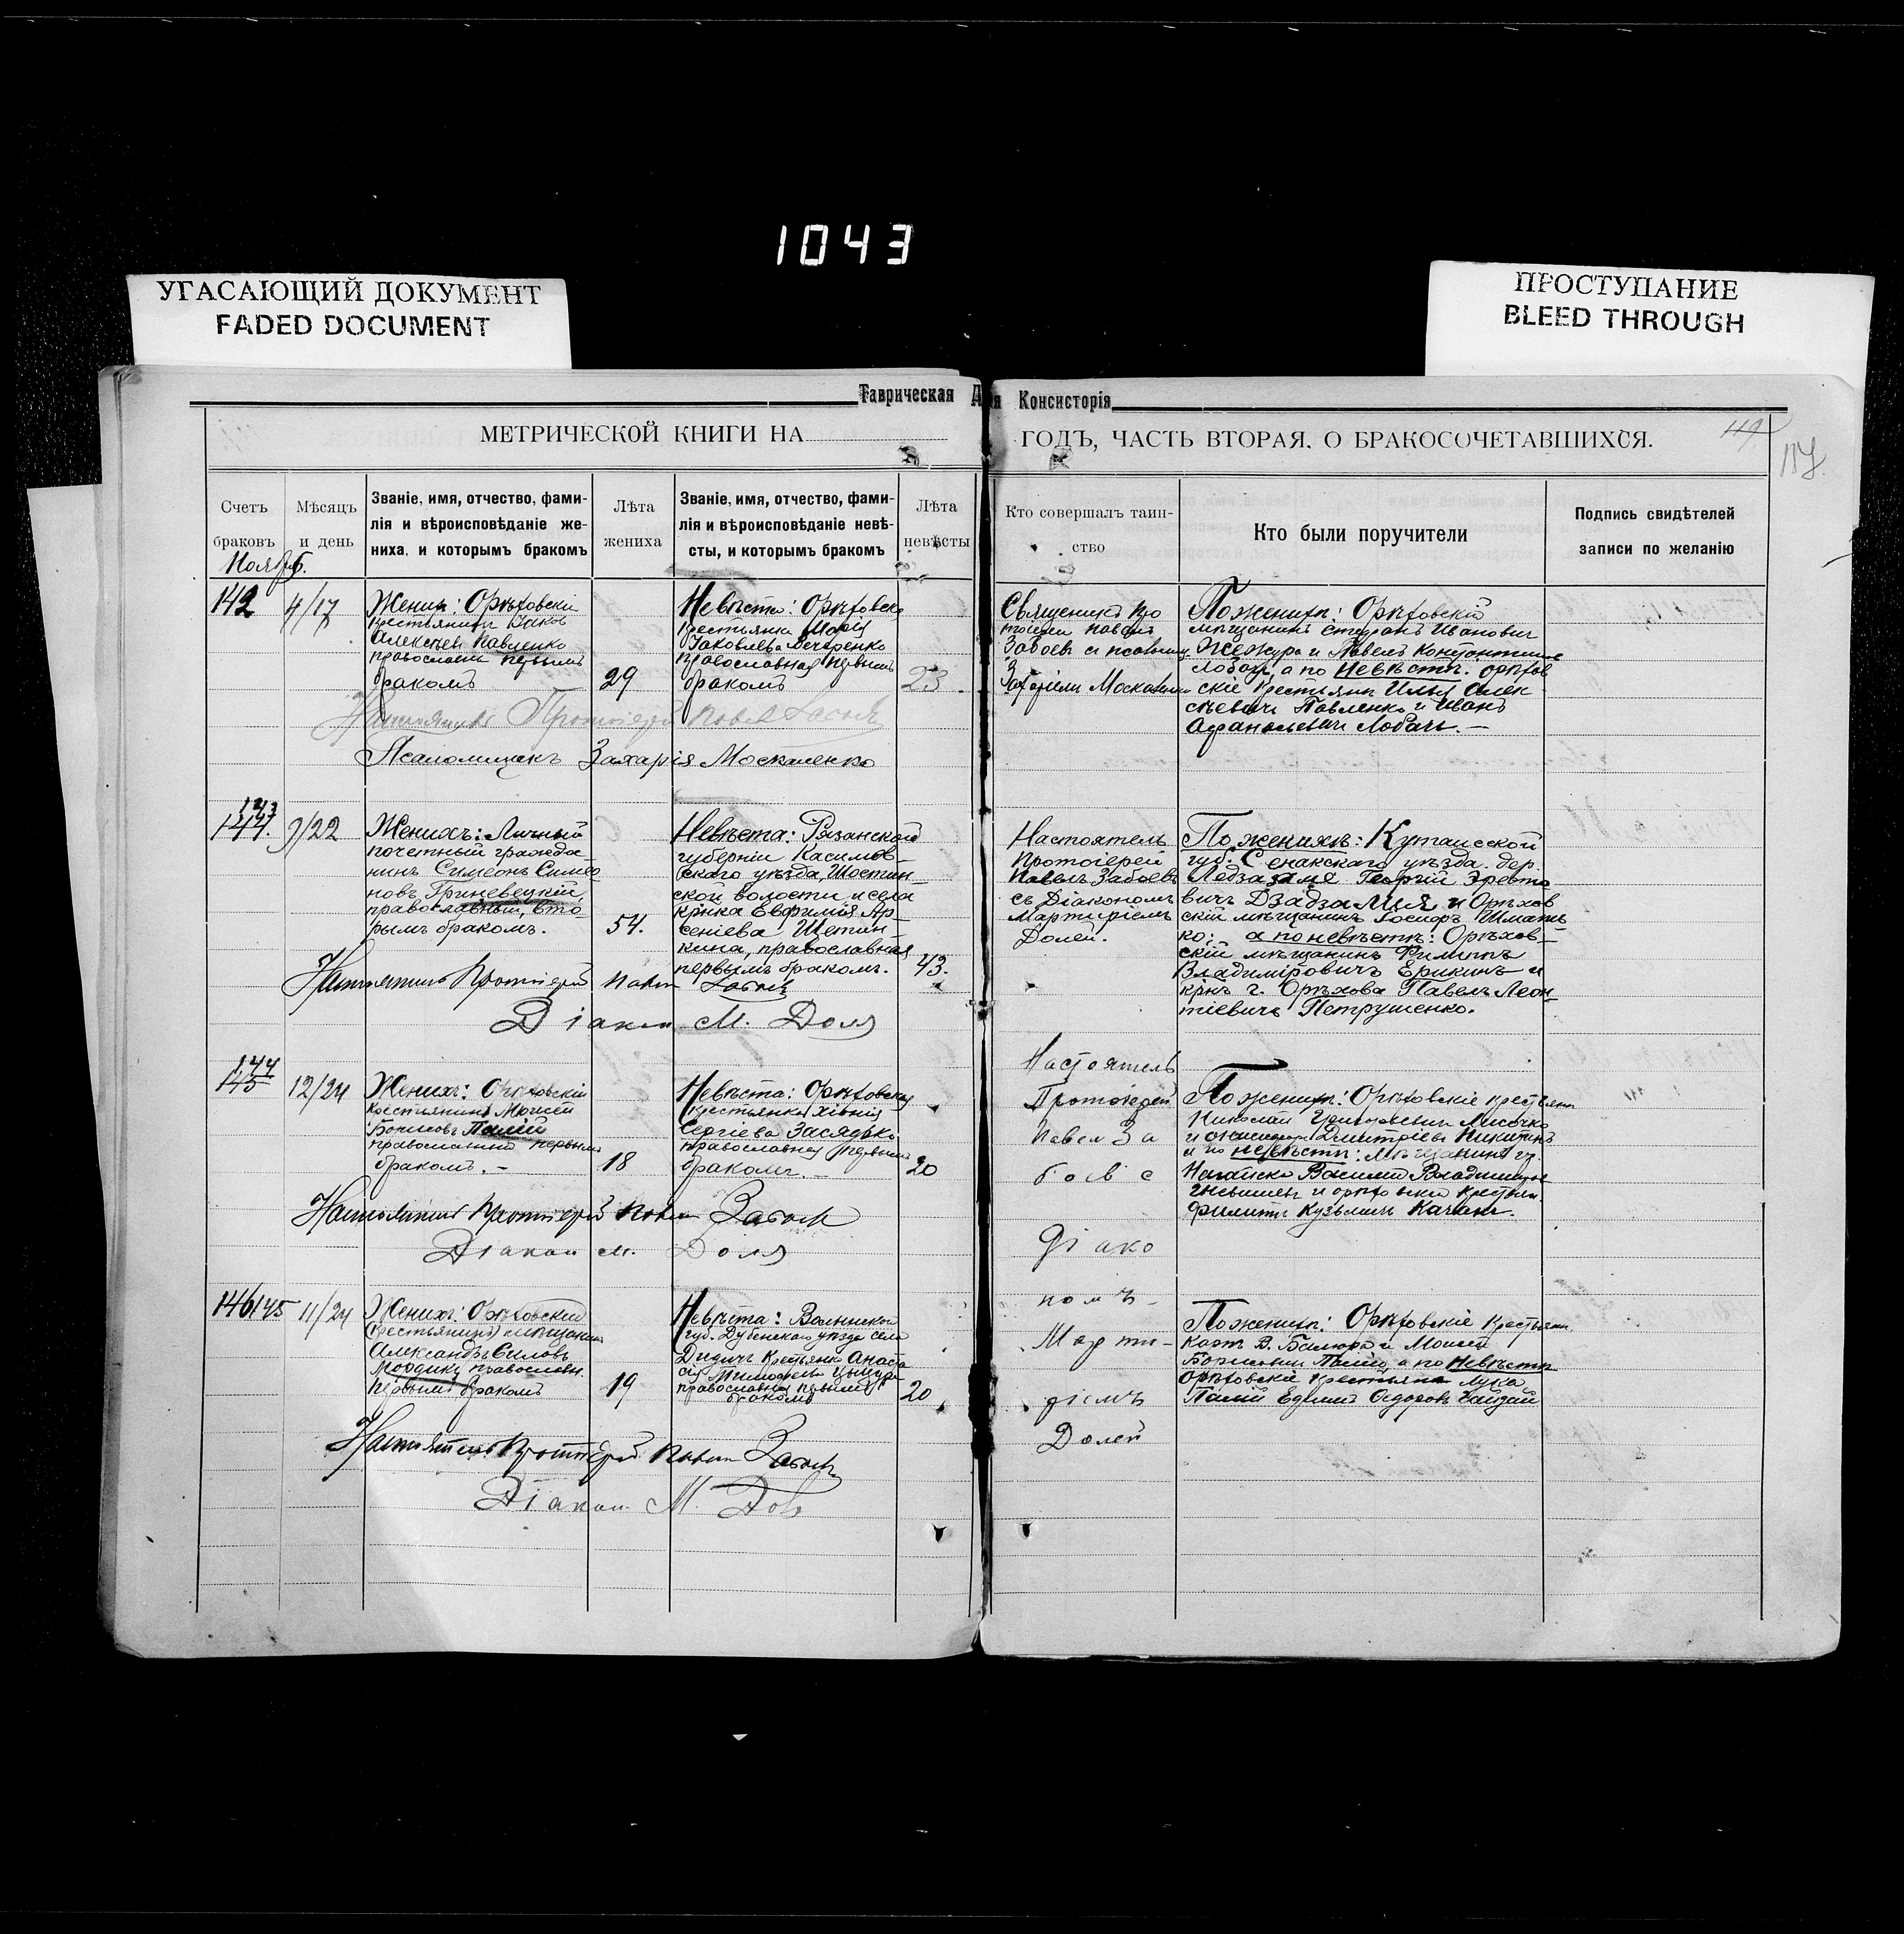 1043
УГАСАЮЩИЙ ДОКУМЕНТ
FADED DOCUMENT
ПРОСТУПАНИЕ
BLEED THROUGH
Таврическая Д я Консисторія
МЕТРИЧЕСКОЙ КНИГИ НА
ГОДЪ, ЧАСТЬ ВТОРАЯ, О БРАКОСОЧЕТАВШИХСЯ.
119
117.
Счетъ браковъ
Мѣсяцъ и день
Званіе, имя, отчество, фами-
лія и вѣроисповѣданіе же-
ниха, и которымъ бракомъ
Лѣта жениха
Званіе, имя, отчество, фами-
лія и вѣроисповѣданіе невѣ-
сты, и которымъ бракомъ
Лѣта невѣсты
Кто совершалъ таин-
ство
Кто были поручители
Подпись свидѣтелей
записи по желанію
Ноябрь.
142
4/17
Женихъ: Орѣховскій
крестьянинъ Яковъ
Алексѣевъ Павленко
православный первымъ
бракомъ
29
Невѣста: Орѣховская
крестьянка Марія
Яковлева
православная первымъ
бракомъ
23
Священникъ Про
тоіерей Павелъ
Забоевъ и псаломщ.
Захарій Москаленко
По женихѣ: Орѣховскій
мѣщанинъ Стефанъ Ивановичъ
Жежура и Павелъ Константинов
Лобачъ, а по невѣстѣ: орѣхов
скіе крестьяне Илья Алек
сѣевичъ Павленко и Иванъ
Афанасьевичъ Лобачъ. —
Настоятель Протоіерей Павелъ Забоевъ
Псаломщикъ Захарія Москаленко
143
144.
9/22
Женихъ: Личный
почетный гражда-
нинъ Симеонъ Симео
новъ Гриневецкій,
православный, вто
рымъ бракомъ.
54.
Невѣста: Рязанской
губерніи Касимов-
скаго уѣзда, Шостин
ской волости и села
крнка Евфимія Ар-
сеніева Щетин-
кина, православная
первымъ бракомъ.
43.
Настоятель
Протоіерей
Павелъ Забоевъ
съ Діакономъ
Мартиріемъ
Долей.
По женихѣ: Кутаисской
губ. Сенакскаго уѣзда дер.
Ледзадзаме Георгій Эресто
вичъ Дзадзамія и Орѣхов
скій мѣщанинъ Іосифъ Шмать
ко; а по невѣстѣ: Орѣхов-
скій мѣщанинъ Филиппъ
Владиміровичъ Ерикинъ и
крнъ г. Орѣхова Павелъ Леон-
тіевичъ Петрушенко.
Настоятель Протоіерей Павелъ Забоевъ
Діаконъ М. Доля
144
145
12/24
Женихъ: Орѣховскій
крестьянинъ Моисей
Борисовъ Палій
православный первымъ
бракомъ. —
18
Невѣста: Орѣховская
крестьянка Хівнія
Сергіева Засядько
православная первымъ
бракомъ. —
20
Настоятель
Протоіерей
Павел За
боевъ с
Діако
номъ
Марти-
ріемъ
Долей
По женихѣ: Орѣховскіе крестьяне
Николай Григорьевичъ Лисочко
и Дмитріевъ Никитинъ
и по невѣстѣ: Мѣщанинъ гр.
Ногайска Василій Владимиров
и орѣховскій крестьян.
Филиппъ Кузьмичъ Качанъ.
Настоятель Протоіерей Павелъ Забоевъ
Діаконъ М. Доля
146 145
11/24
Женихъ: Орѣховскій
крестьянинъ мѣщанинъ
Александръ Силовъ
православн.
первымъ бракомъ
19
Невѣста: Волынской
губ. Дубенскаго уѣзда села
Дидичъ крестьянка Анаста
сія Тимофеева
православная первымъ
бракомъ
20
По женихѣ: Орѣховскіе крестьяне
Карп В. и Моисей
Борисовичъ Палій, а по невѣстѣ
Орѣховскіе крестьяне Лука
Палій Ефимъ Ѳедоровъ Хайдай
Настоятель Протоіерей Павелъ Забоевъ
Діаконъ М. Доля